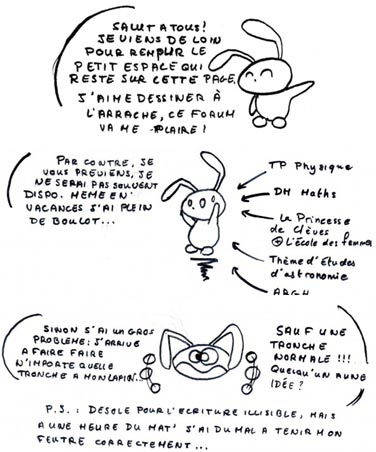 SALUT A TOUS!
JE VIENS DE LOIN
POUR REMPLIR LE
PETIT ESPACE QUI
RESTE SUR CETTE PAGE.
J'AIME DESSINER À
L'ARRACHE, CE FORUM
VA ME PLAIRE!
PAR CONTRE, JE
VOUS PREVIENS, JE
NE SERAI PAS SOUVENT
DISPO. MEME EN
VACANCES J'AI PLEIN
DE BOULOT...
TP Physique
DM Maths
La Princesse
de Clèves
@ L'École des femmes
Thème d'Etudes
d'astronomie
ARGH
SINON J'AI UN GROS
PROBLEME: J'ARRIVE
A FAIRE FAIRE
N'IMPORTE QUELLE
TRONCHE A MON LAPIN...
SAUF UNE
TRONCHE
NORMALE !!!
QUELQU'UN A UNE
IDÉE?
P.S.: DESOLE POUR L'ECRITURE ILLISIBLE, MAIS
A UNE HEURE DU MAT' J'AI DU MAL A TENIR MON
FEUTRE CORRECTEMENT...